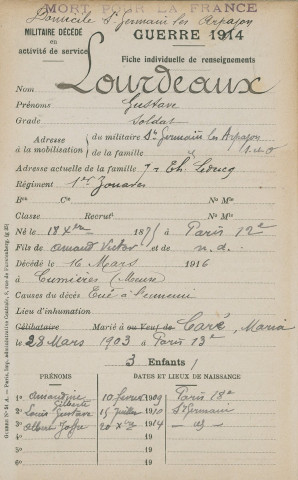 MORT POUR LA FRANCE
Domicile St Germain les Arpajon
MILITAIRE DÉCÉDÉ
en
activité de service
GUERRE 1914
Fiche individuelle de renseignements
Nom Lourdeaux
Prénoms Gustave
Grade Soldat
Adresse à la mobilisation du militaire St Germain les Arpajon
de la famille S & O
Adresse actuelle de la famille 7 r Th
Régiment 1er Zouaves
Bon Cie No Mle
Classe Recrut No Mle
Né le 18 Xbre 187 à Paris 12e
Fils de Amand Victor et de n.d.
Décédé le 16 Mars 1916
à Cumières (Meuse)
Causes du décès Tué à l'ennemi
Lieu d'inhumation
Célibataire Marié à ou Veuf de Caré, Maria
le 28 Mars 1903 à Paris 13e
3 Enfants
PRÉNOMS DATES ET LIEUX DE NAISSANCE
1° Amandine 10 février 1909 Paris 18e
2° Louis Gustave 15 Juillet 1910 St Germain
3° Joffre 20 Xbre 1914 — do —